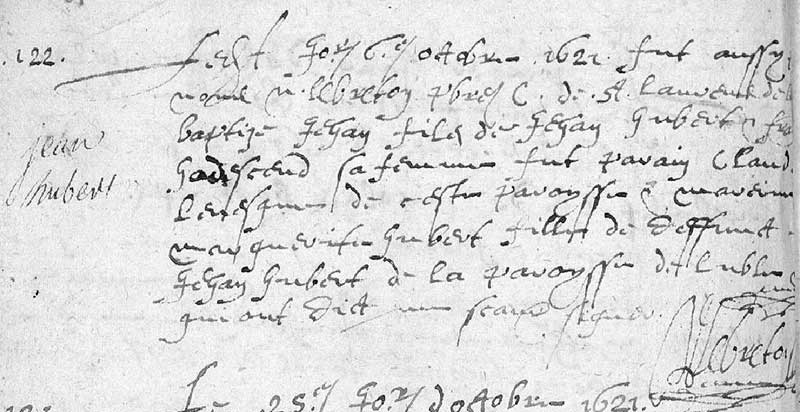 .122.
Jean
hubert
Le 6e jor octobre .1621. fut aussy
nomé N. LeBretoy pbre C. de St. Laurent de
baptizé Jehan filz de Jehan hubert &
sa femme fut parain Claud
de ceste paroysse & mareine
marguerite hubert fille de deffunct
Jehan hubert de la paroysse de
qui ont dict ne scavoir signer.
LeBretoy
Le 25e jor d octobre 1621.